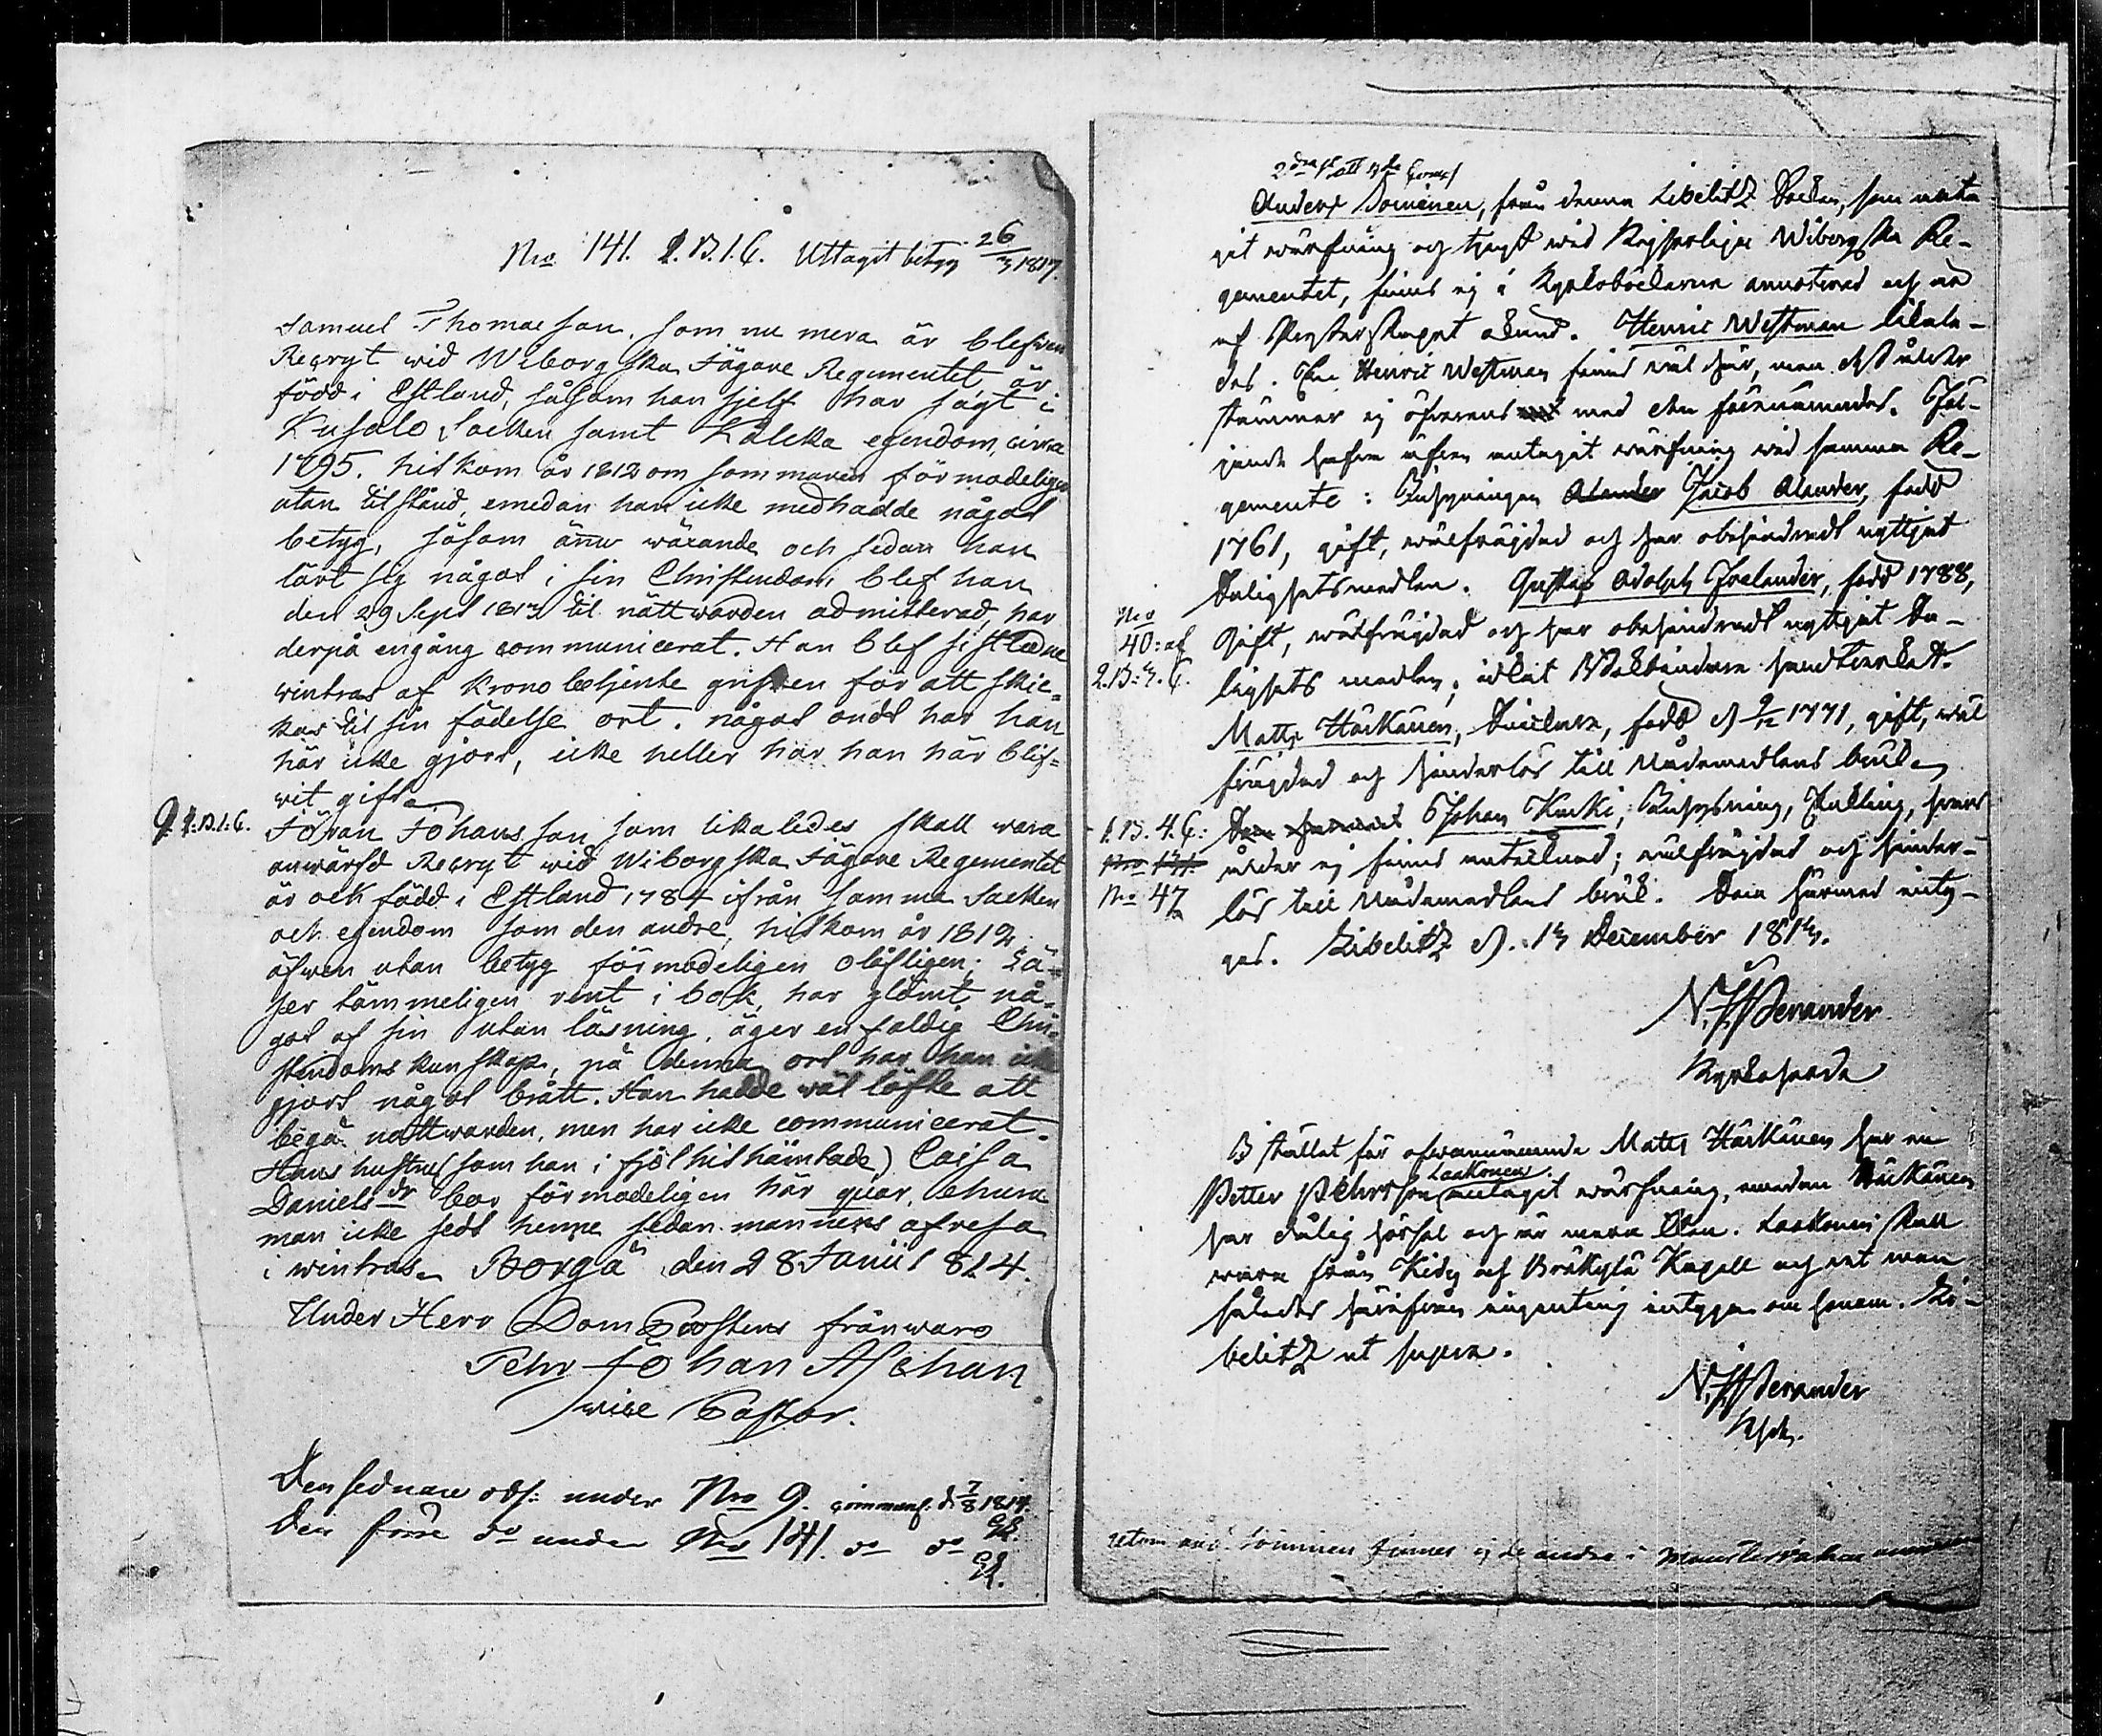 Nro 141. 1.B.1.C. Uttagit betyg 26/3 1817.
Samuel Thomasson, som nu mera är blefwen
Recryt wid Wiborgska Jägare Regementet är
född i Estland, såsom han sjelf har sagt i
Kusalo Socken samt Kalcka egendom, circa
1795. hitkom år 1812 om sommaren förmodeligen
utan tilstånd, emedan han icke medhadde något
betyg, såsom ännu wäxande och sedan han
lärt sig något i sin Christendom blef han
den 29 Sept 1813 til nattwarden admitterad, har
derpå engång communicerat. Han blef sistledne
wintras af Kronobetjente gripen för att skic-
kas til sin födelse ort. något ondt har han
här icke gjort, icke heller har han här blif-
wit gift.
9. 1.B.1.C.
Jöran Johansson som likaledes skall wara
anwärfd Recryt wid Wiborgska Jägare Regementet
är ock född i Estland 1784 ifrån samma Socken
och egendom som den andre, hitkom år 1812
äfwen utan betyg förmodeligen olofligen; Lä-
ser tämmeligen rent i bok, har glömt nå-
got af sin utan läsning, äger enfaldig Chri-
stendoms kunskap, på denna ort har han icke
gjort något brått. Han hadde wäl löfte att
begå nattwarden, men har icke communicerat.
Hans hustru (som han i fjol hit hämtade) Caisa
Daniels dr bor förmodeligen här quar, ehuru
man icke sedt henne sedan mannens afresa
i wintras. Borgå den 28 Junii 1814.
Under Herr DomProstens frånwaro
Pehr Johan Alehan
wice Pastor.
Den sednare obs: under Nro 9. commun: d. 7/8 1814.
Den förre do under Nro 141. do do
Anders Soininen, från denna Libelitz Socken, som anta-
git wärfning och tjenst wid Kejserliga Wiborgska Re-
gementet, finnes ej i Kyrkoböckerna annoterad och är
af Presterskapet okänd. Henric Westman likale-
des. En Henric Westman finnes wäl här, men dess ålder
stämmer ej öfverens med den förenämndes. Föl-
jande hafva äfven antagit wärfning wid samma Re-
gemente: Inhysningen Jacob Alander, född
1761, gift, wälfrägdad och har obehindradt nyttjat
Salighetsmedlen. Gustaf Adolph Forlander, född 1788,
Nro
40: af
2.B:3.C.
Gift, wälfrägdad och har obehindradt nyttjat Sa-
lighets medlen; idkat handtverk.
Matts Härkänen, född d. 9/12 1771, gift, wäl
frägdad och hinderlös till Nådemedlens bruk.
1.B.4.C:
Nro 171.
No 47
Johan Kurki, Inhysning, Yngling, hvars
ålder ej finnes antecknad; wälfrägdad och hinder-
lös till Nådemedlens bruk. Som härmed inty-
gas. Libelitz d. 13 December 1813.
N. J. Perander
Kyrkoherde
I stället för ofvannämnde Matts Härkänen har en
Petter Pehrsson Laakonen antagit wärfning, emedan Härkänen
har dålig hörsel och är mera Laakonen skall
wara från Kides och Bräkylä Kapell och vet man
således härifrån ingenting intyga om honom. Li-
belitz ut supra.
N. J. Perander
Khde.